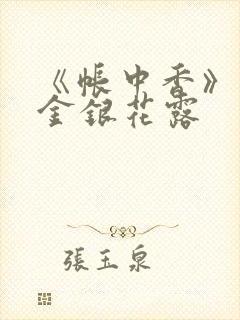 《帳中香》
金銀花露
張玉泉